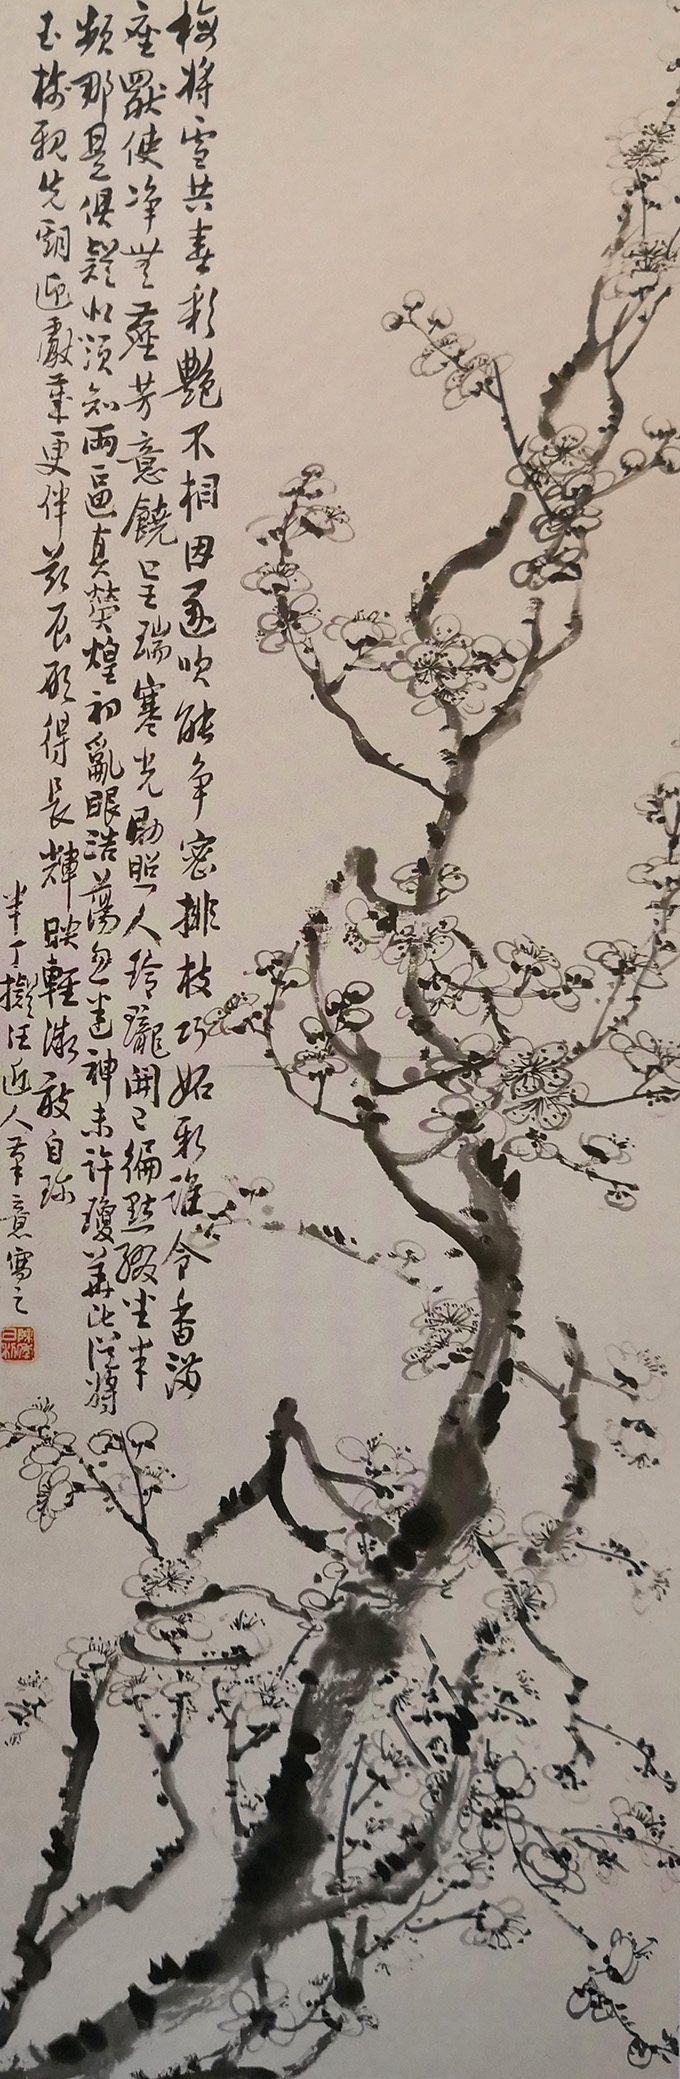 梅將雪共春彩艷不相因逐吹能争密排枝巧妬新誰令香满
座獨使净無塵芳意饒呈瑞寒光助照人玲瓏開已徧點綴坐来
頻那是俱疑似須知兩逼真熒煌初亂眼浩蕩忽迷神未許瓊華比從將
玉樹親先期迎獻歲更伴兹辰願得長輝映輕微敢自珍
半丁擬汪近人筆意寫之